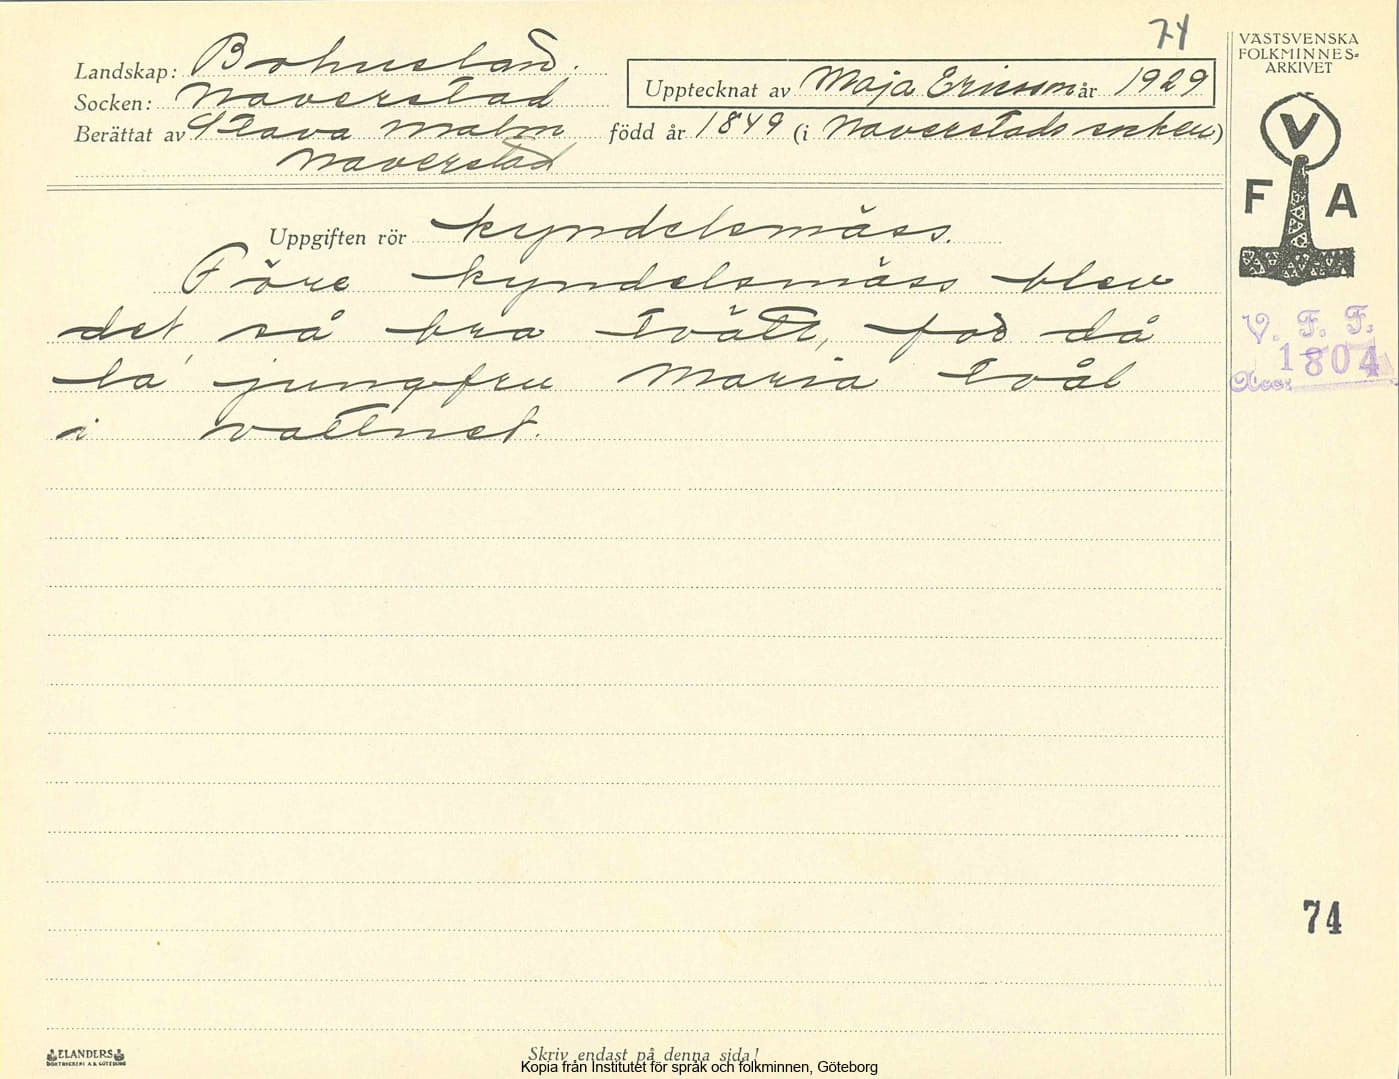 74
Landskap: Bohuslän.
Socken: Naverstad
Upptecknat av Maja Ericsson år 1929
Berättat av Klava Malm född år 1849 (i Naverstads socken)
Naverstad
VÄSTSVENSKA
FOLKMINNES-
ARKIVET
V
F A
Uppgiften rör kyndelsmäss.
Före kyndelsmäss blev
det så bra tvätt, för då
la jungfru Maria tvål
i vattnet.
V. F. F.
1804
Acc:
74
ELANDERS
BOKTRYCKERI A.B. GÖTEBORG
Skriv endast på denna sida!
Kopia från Institutet för språk och folkminnen, Göteborg